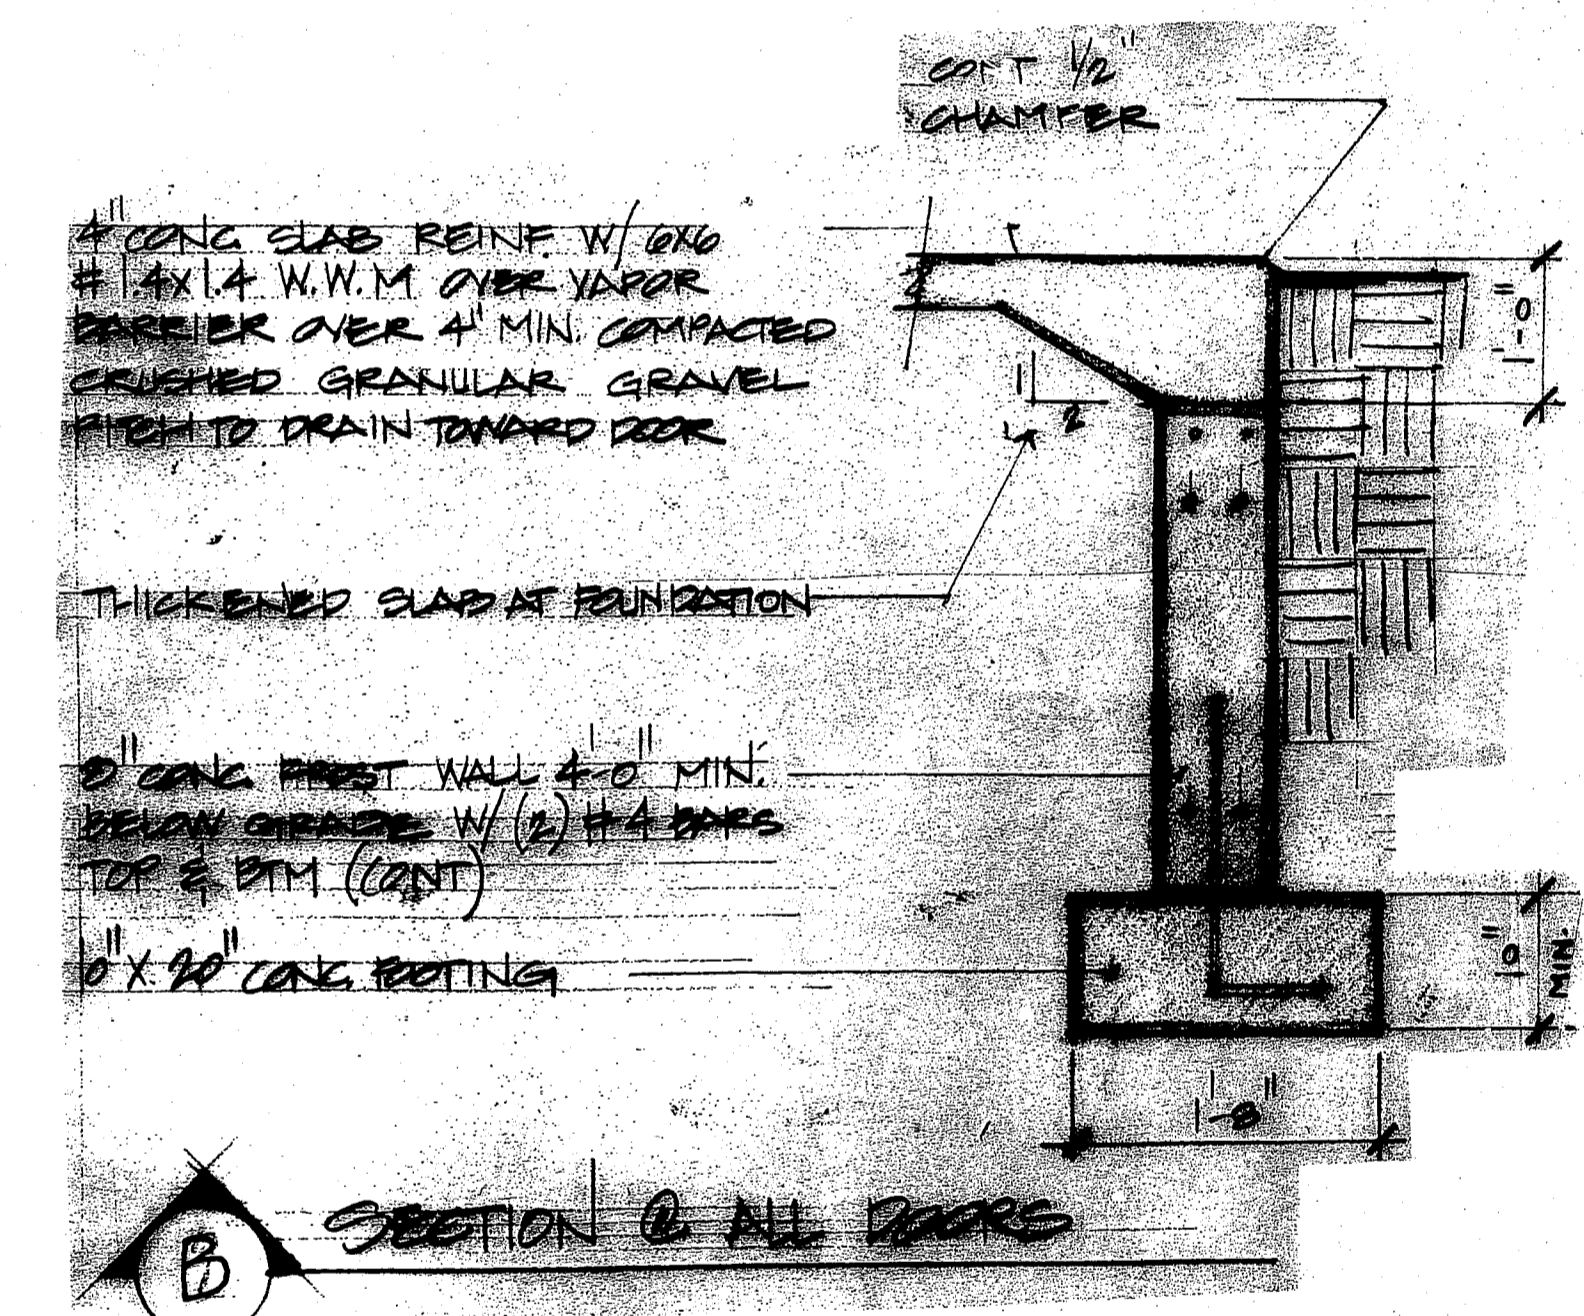 CONT 1/2"
CHAMFER
4" CONC. SLAB REINF. W/ 6X6
# 1.4X1.4 W.W.M OVER VAPOR
BARRIER OVER 4" MIN. COMPACTED
CRUSHED GRANULAR GRAVEL
PITCH TO DRAIN TOWARD DOOR
4"
1
2
1'-0"
THICKENED SLAB AT FOUNDATION
8" CONC. FROST WALL 4'-0" MIN.
BELOW GRADE W/ (2) #4 BARS
TOP & BTM (CONT)
10" X 20" CONC. FOOTING
10"
MIN.
1'-8"
B
SECTION @ ALL DOORS